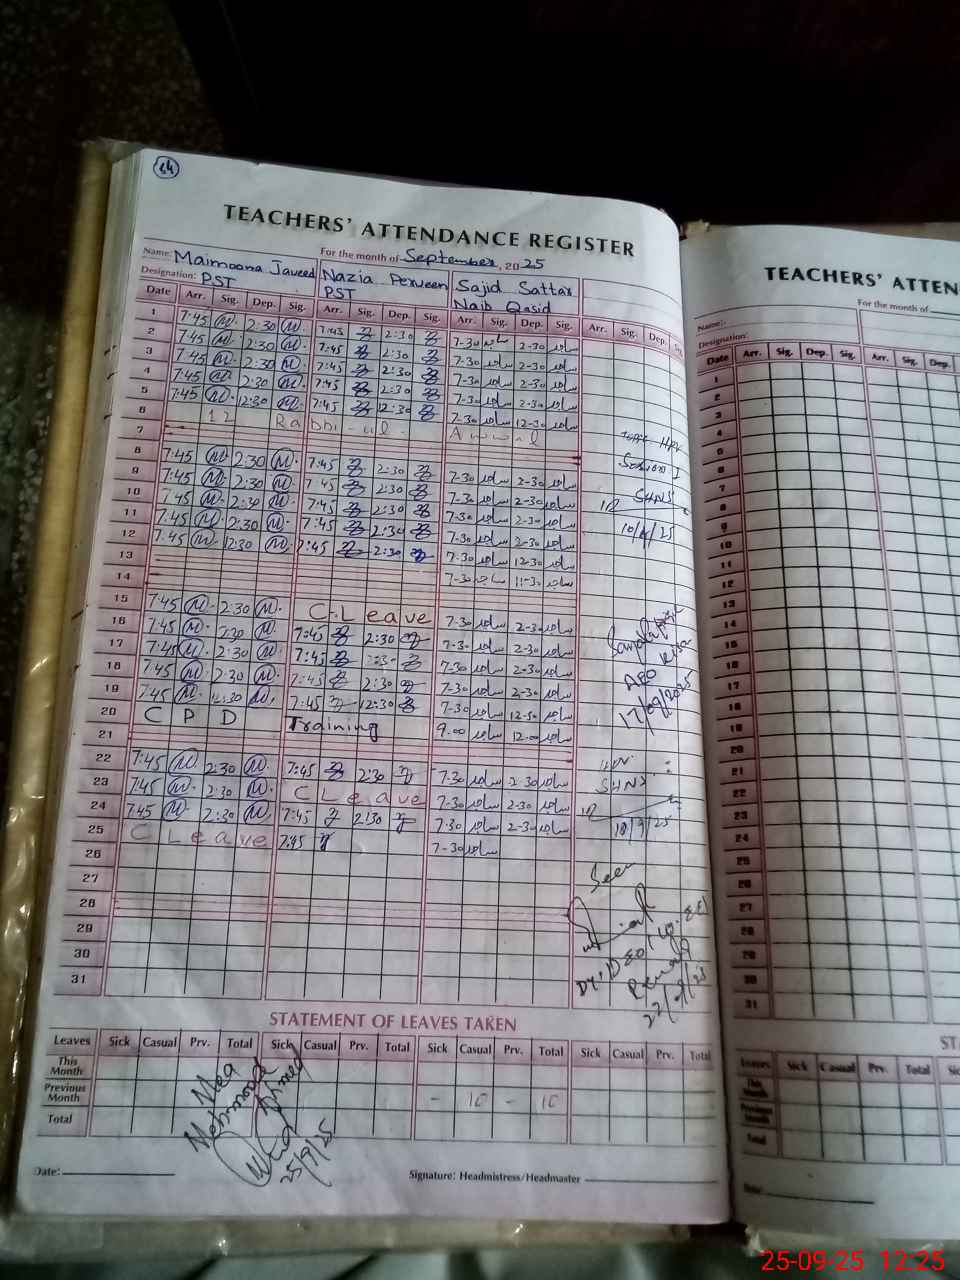 54
TEACHERS' ATTENDANCE REGISTER
For the month of September, 2025
Name: Maimoona Javeed Nazia Perveen Sajid Sattar
Designation: PST PST Naib Qasid
Date Arr. Sig. Dep. Sig. Arr. Sig. Dep. Sig. Arr. Sig. Dep. Sig. Arr. Sig. Dep. Sig.
1 7:45 2:30 7:45 2:30 7-30 ساجد 2-30 ساجد
2 7:45 2:30 7:45 2:30 7-30 ساجد 2-30 ساجد
3 7:45 2:30 7:45 2:30 7-30 ساجد 2-30 ساجد
4 7:45 2:30 7:45 2:30 7-30 ساجد 2-30 ساجد
5 7:45 12:30 7:45 12:30 7-30 ساجد 12-30 ساجد
6 12 Rabbi-ul- Awwal
7
8 7:45 2:30 7:45 2:30 7-30 ساجد 2-30 ساجد
9 7:45 2:30 7:45 2:30 7-30 ساجد 2-30 ساجد
10 7:45 2:30 7:45 2:30 7-30 ساجد 2-30 ساجد
11 7:45 2:30 7:45 2:30 7-30 ساجد 2-30 ساجد
12 7:45 12:30 7:45 2:30 7-30 ساجد 12-30 ساجد
13 7-30 ساجد 11-30 ساجد
14
15 7:45 2:30 C-Leave 7-30 ساجد 2-30 ساجد
16 7:45 2:30 7:45 2:30 7-30 ساجد 2-30 ساجد
17 7:45 2:30 7:45 2:30 7-30 ساجد 2-30 ساجد
18 7:45 2:30 7:45 2:30 7-30 ساجد 2-30 ساجد
19 7:45 12:30 7:45 12:30 7-30 ساجد 12-30 ساجد
20 C P D Training 9.00 ساجد 12.00 ساجد
21
22 7:45 2:30 7:45 2:30 7-30 ساجد 2-30 ساجد
23 7:45 2:30 C Leave 7-30 ساجد 2-30 ساجد
24 7:45 2:30 7:45 2:30 7-30 ساجد 2-30 ساجد
25 C Leave 7:45 7-30 ساجد
26
27
28
29
30
31
HPV
Session I
SHNS
10/9/25
AEO
17/09/2025
SHNS
18/9/25
Seen
Dy: DEO (W-EE)
22/9/25
STATEMENT OF LEAVES TAKEN
Leaves Sick Casual Prv. Total Sick Casual Prv. Total Sick Casual Prv. Total Sick Casual Prv. Total
This Month
Previous Month - 10 - 10
Total
Mehmooda
25/9/25
Date: Signature: Headmistress/Headmaster
TEACHERS' ATTEN
For the month of
Name:-
Designation:
Date Arr. Sig. Dep. Sig. Arr. Sig. Dep.
1
2
3
4
5
6
7
8
9
10
11
12
13
14
15
16
17
18
19
20
21
22
23
24
25
26
27
28
29
30
31
STA
Leaves Sick Casual Prv. Total Sick
This Month
Previous Month
Total
25-09-25 12:25